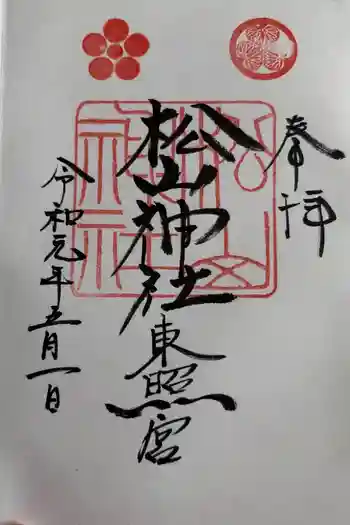 奉拝
松山神社
東照宮
令和元年五月一日